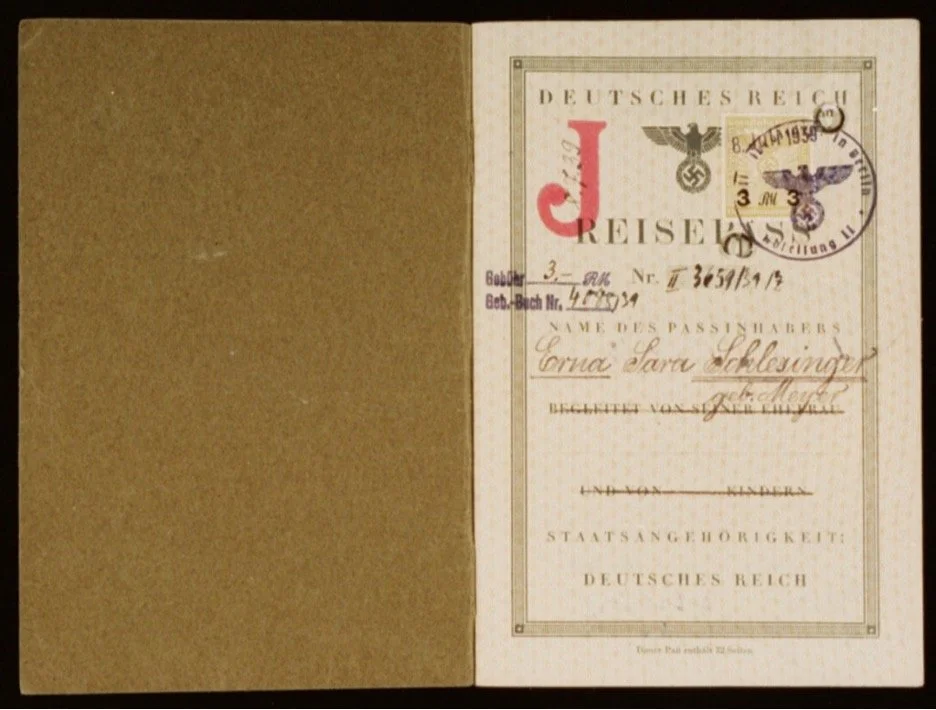 DEUTSCHES REICH
J
8. 1939
3 RM 3
in Berlin
Abteilung II
REISEPASS
Gebühr 3.- RM
Nr. II 3659/39/7
Geb.-Buch Nr. /39
NAME DES PASSINHABERS
Erna Sara Schlesinger
geb. Meyer
BEGLEITET VON SEINER EHEFRAU
UND VON KINDERN
STAATSANGEHÖRIGKEIT:
DEUTSCHES REICH
Dieser Paß enthält 32 Seiten